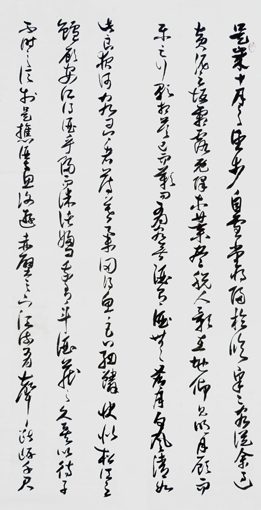 是歲十月之望步自雪堂將歸於臨皋二客從余過
黃泥之坂霜露既降木葉盡脫人影在地仰見明月顧而
樂之行歌相答已而歎曰有客無酒有酒無肴月白風清如
此良夜何客曰今者薄暮舉網得魚巨口細鱗狀似松江之
鱸顧安所得酒乎歸而謀諸婦婦曰我有斗酒藏之久矣以待子
不時之須於是攜酒與魚復遊於赤壁之下江流有聲斷岸千尺